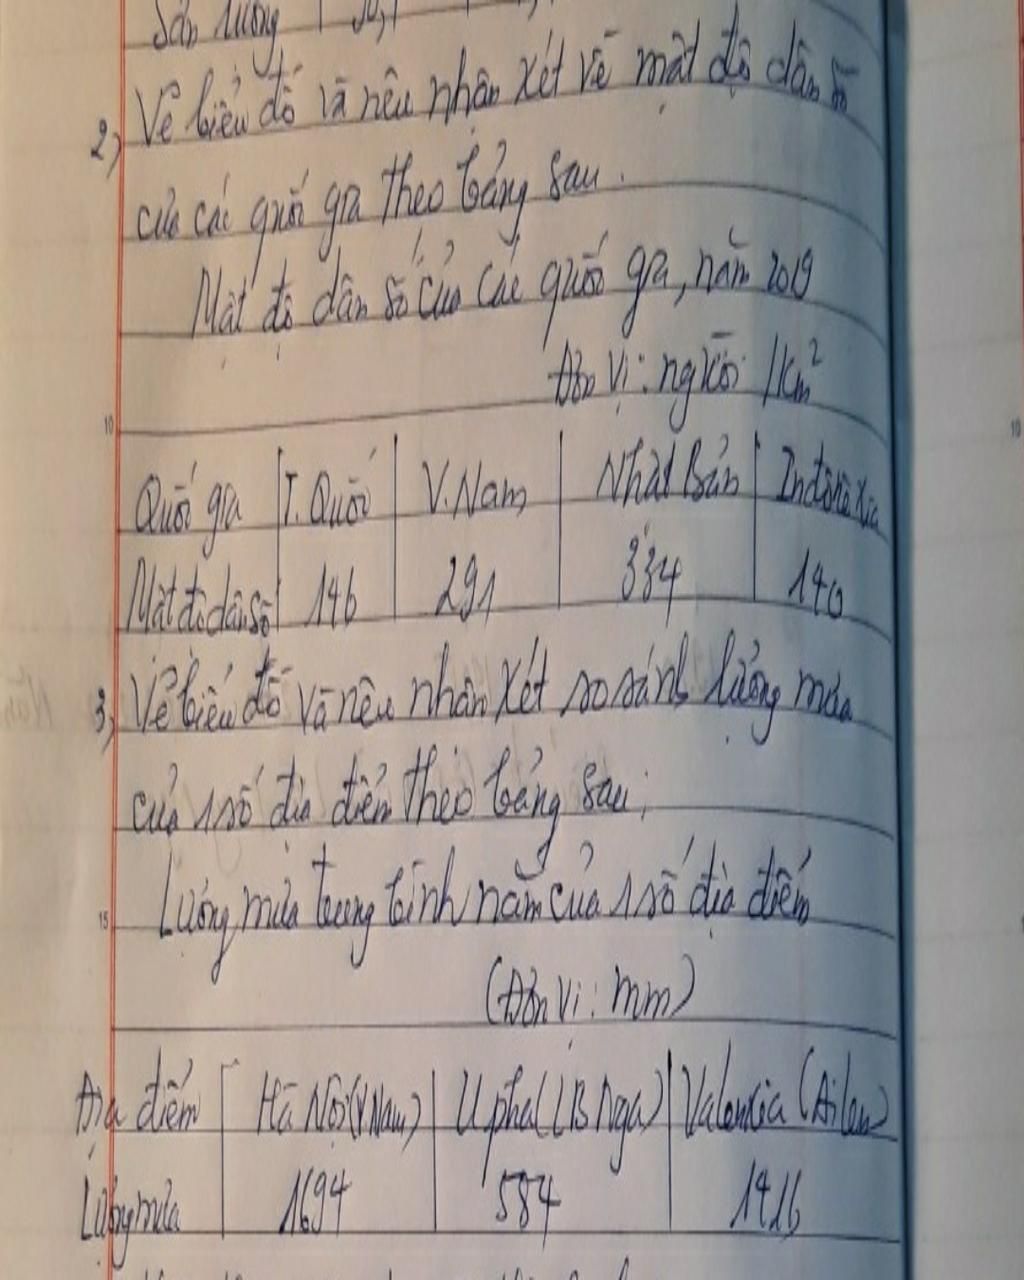 Sản lượng
2) Vẽ biểu đồ và nêu nhận xét về mật độ dân số
của các quốc gia theo bảng sau.
Mật độ dân số của các quốc gia, năm 2019
Đơn vị: người /km²
Quốc gia | T. Quốc | V.Nam | Nhật Bản | Inđônêxia
Mật độ dân số | 146 | 291 | 334 | 140
3) Vẽ biểu đồ và nêu nhận xét so sánh lượng mưa
của 1 số địa điểm theo bảng sau,
Lượng mưa trung bình năm của 1 số địa điểm
(Đơn vị: mm)
Địa điểm | Hà Nội (V.Nam) | Upha (LB Nga) | Valenxia (Ailen)
Lượng mưa | 1694 | 584 | 1416